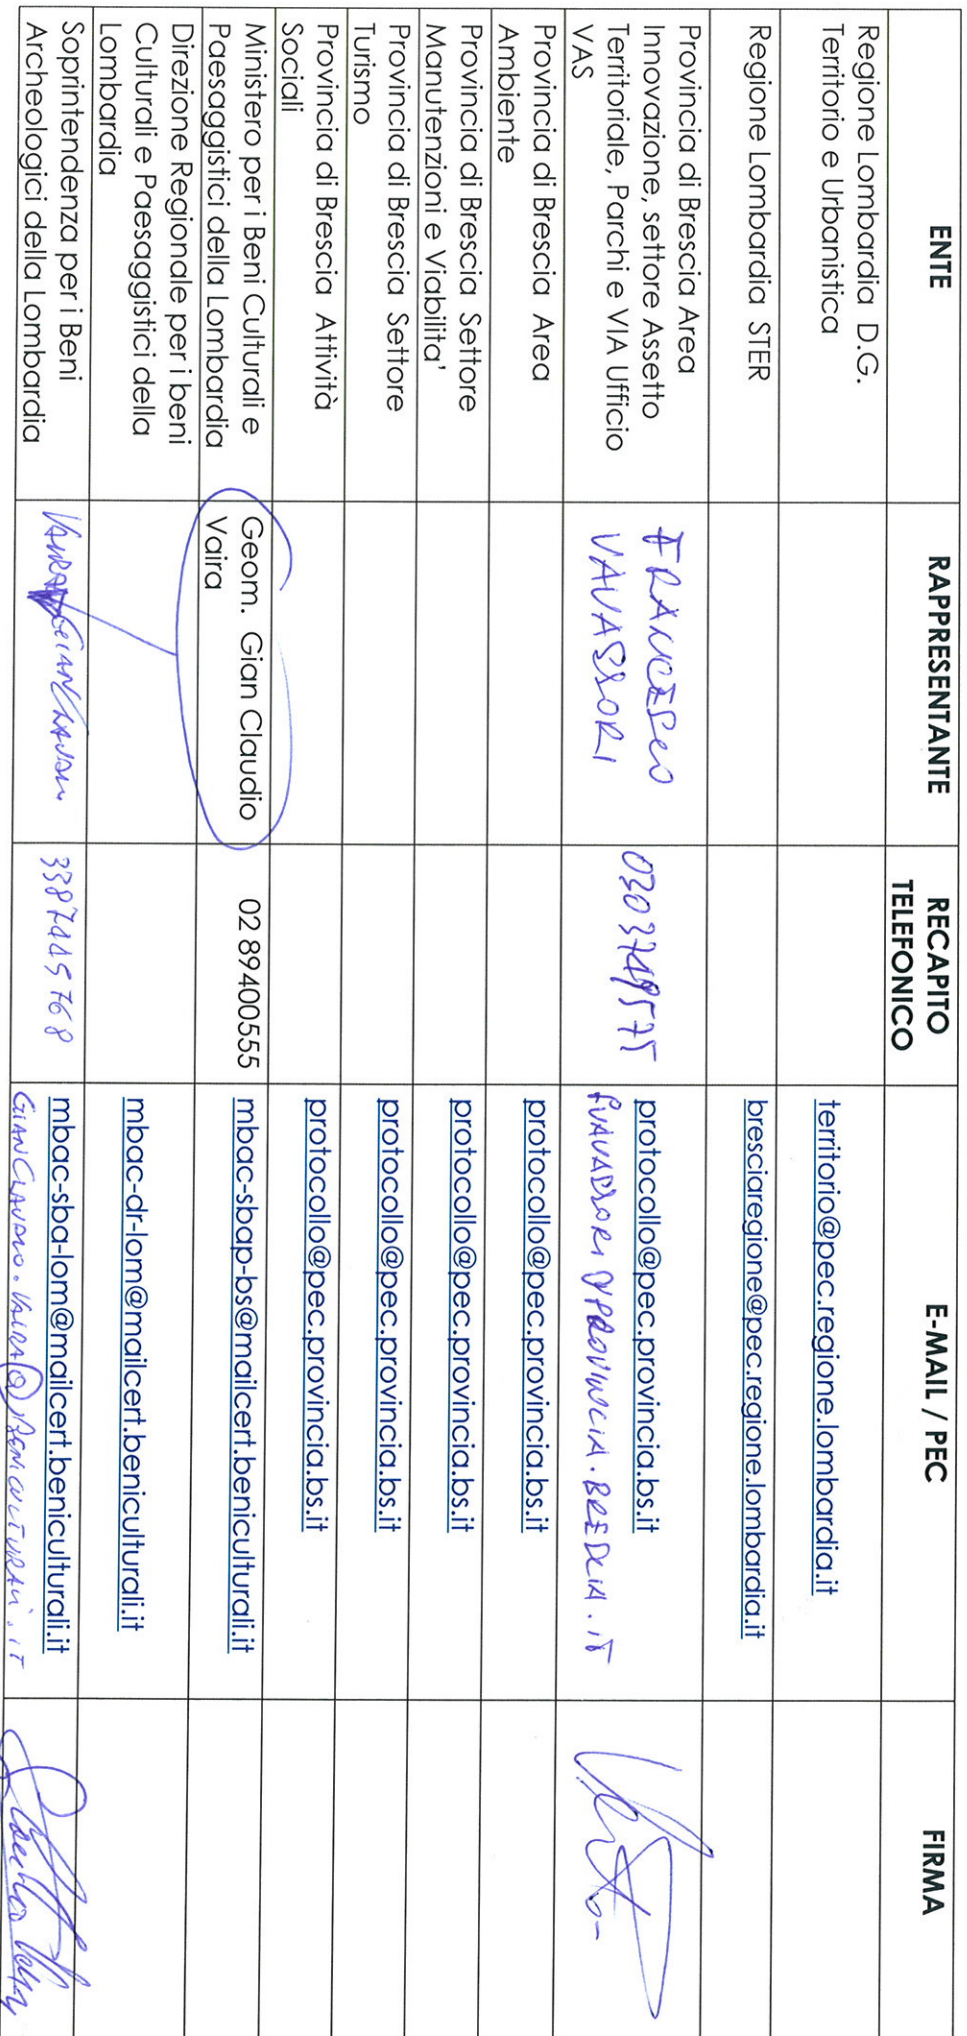 ENTE
RAPPRESENTANTE
RECAPITO
TELEFONICO
E-MAIL / PEC
FIRMA
Regione Lombardia D.G.
Territorio e Urbanistica
territorio@pec.regione.lombardia.it
Regione Lombardia STER
bresciaregione@pec.regione.lombardia.it
Provincia di Brescia Area
Innovazione, settore Assetto
Territoriale, Parchi e VIA Ufficio
VAS
FRANCESCO
VAVASSORI
0303749575
protocollo@pec.provincia.bs.it
FVAVASSORI@PROVINCIA.BRESCIA.IT
Provincia di Brescia Area
Ambiente
protocollo@pec.provincia.bs.it
Provincia di Brescia Settore
Manutenzioni e Viabilita'
protocollo@pec.provincia.bs.it
Provincia di Brescia Settore
Turismo
protocollo@pec.provincia.bs.it
Provincia di Brescia Attività
Sociali
protocollo@pec.provincia.bs.it
Ministero per i Beni Culturali e
Paesaggistici della Lombardia
Geom. Gian Claudio
Vaira
02 89400555
mbac-sbap-bs@mailcert.beniculturali.it
Direzione Regionale per i beni
Culturali e Paesaggistici della
Lombardia
mbac-dr-lom@mailcert.beniculturali.it
Soprintendenza per i Beni
Archeologici della Lombardia
VAIRA GIANCLAUDIO
mbac-sba-lom@mailcert.beniculturali.it
GIANCLAUDIO.VAIRA@BENICULTURALI.IT